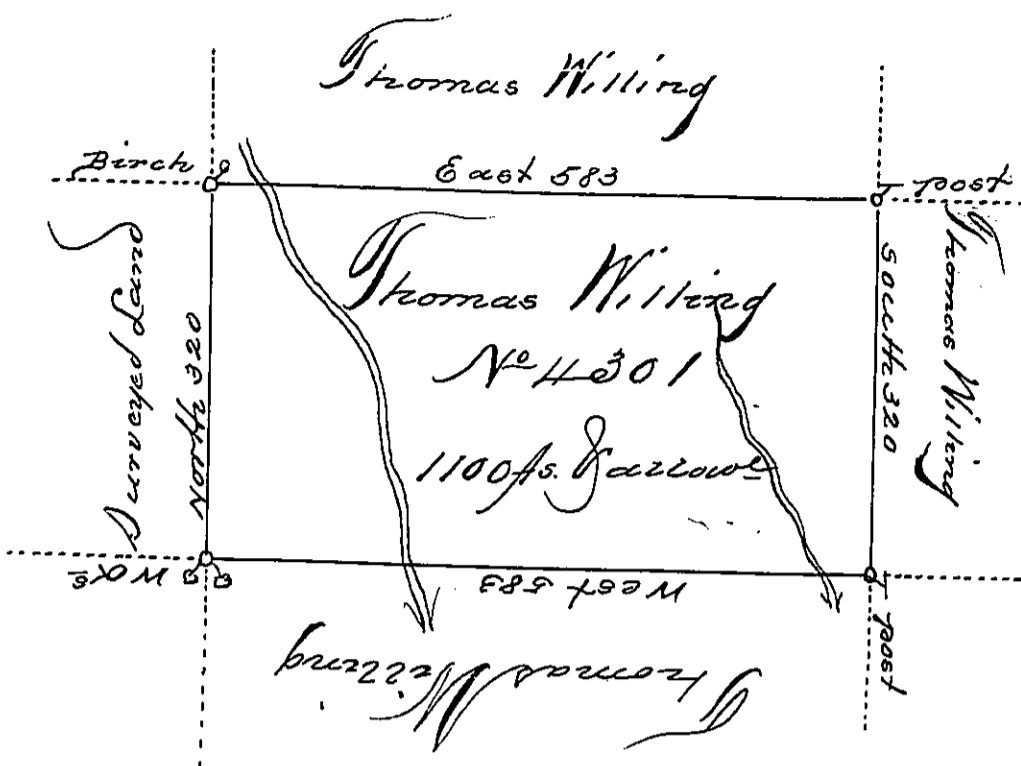 Thomas Willing
Birch
East 583
post
Surveyed Land
North 320
Thomas Willing
No 4301
1100 As.
South 320
Thomas Willing
West 583
post
Thomas Willing